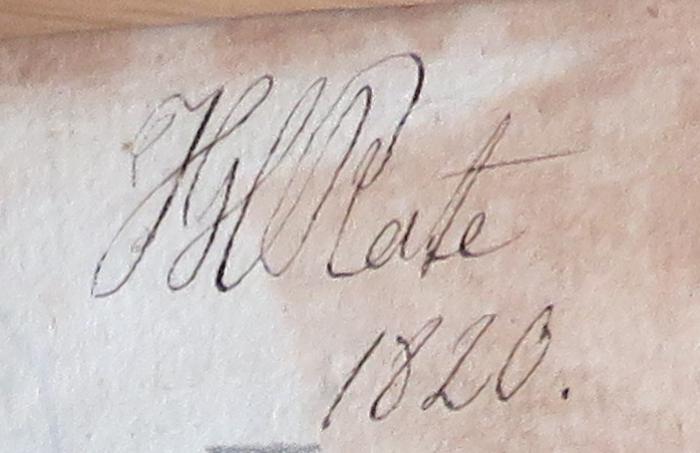 Rate
1820.